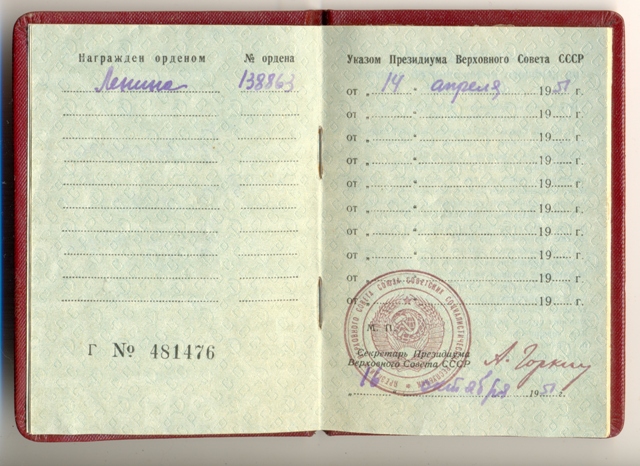 Награжден орденом № ордена
Ленина 138863
Г № 481476
Указом Президиума Верховного Совета СССР
от „ 14 " апреля 1951 г.
от „ " 19 г.
от „ " 19 г.
от „ " 19 г.
от „ " 19 г.
от „ " 19 г.
от „ " 19 г.
от „ " 19 г.
от „ " 19 г.
от „ " 19 г.
М. П.
Секретарь Президиума
Верховного Совета СССР
А. Горкин
„ 16 " октября 1951 г.